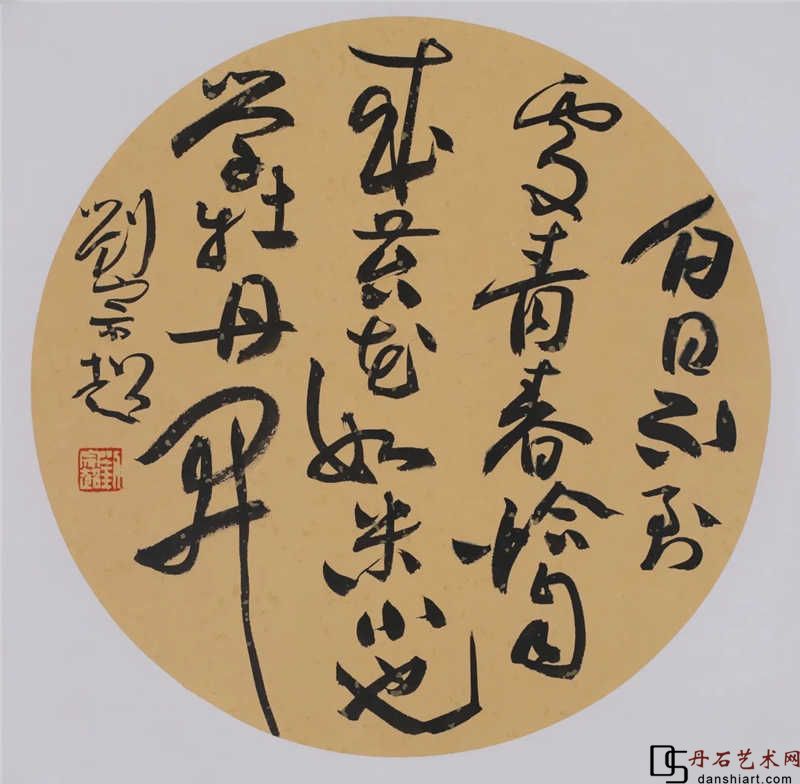 白日不到
處青春恰自
来苔花如米小也
学牡丹開
劉宗超
DS丹石艺术网
danshiart.com